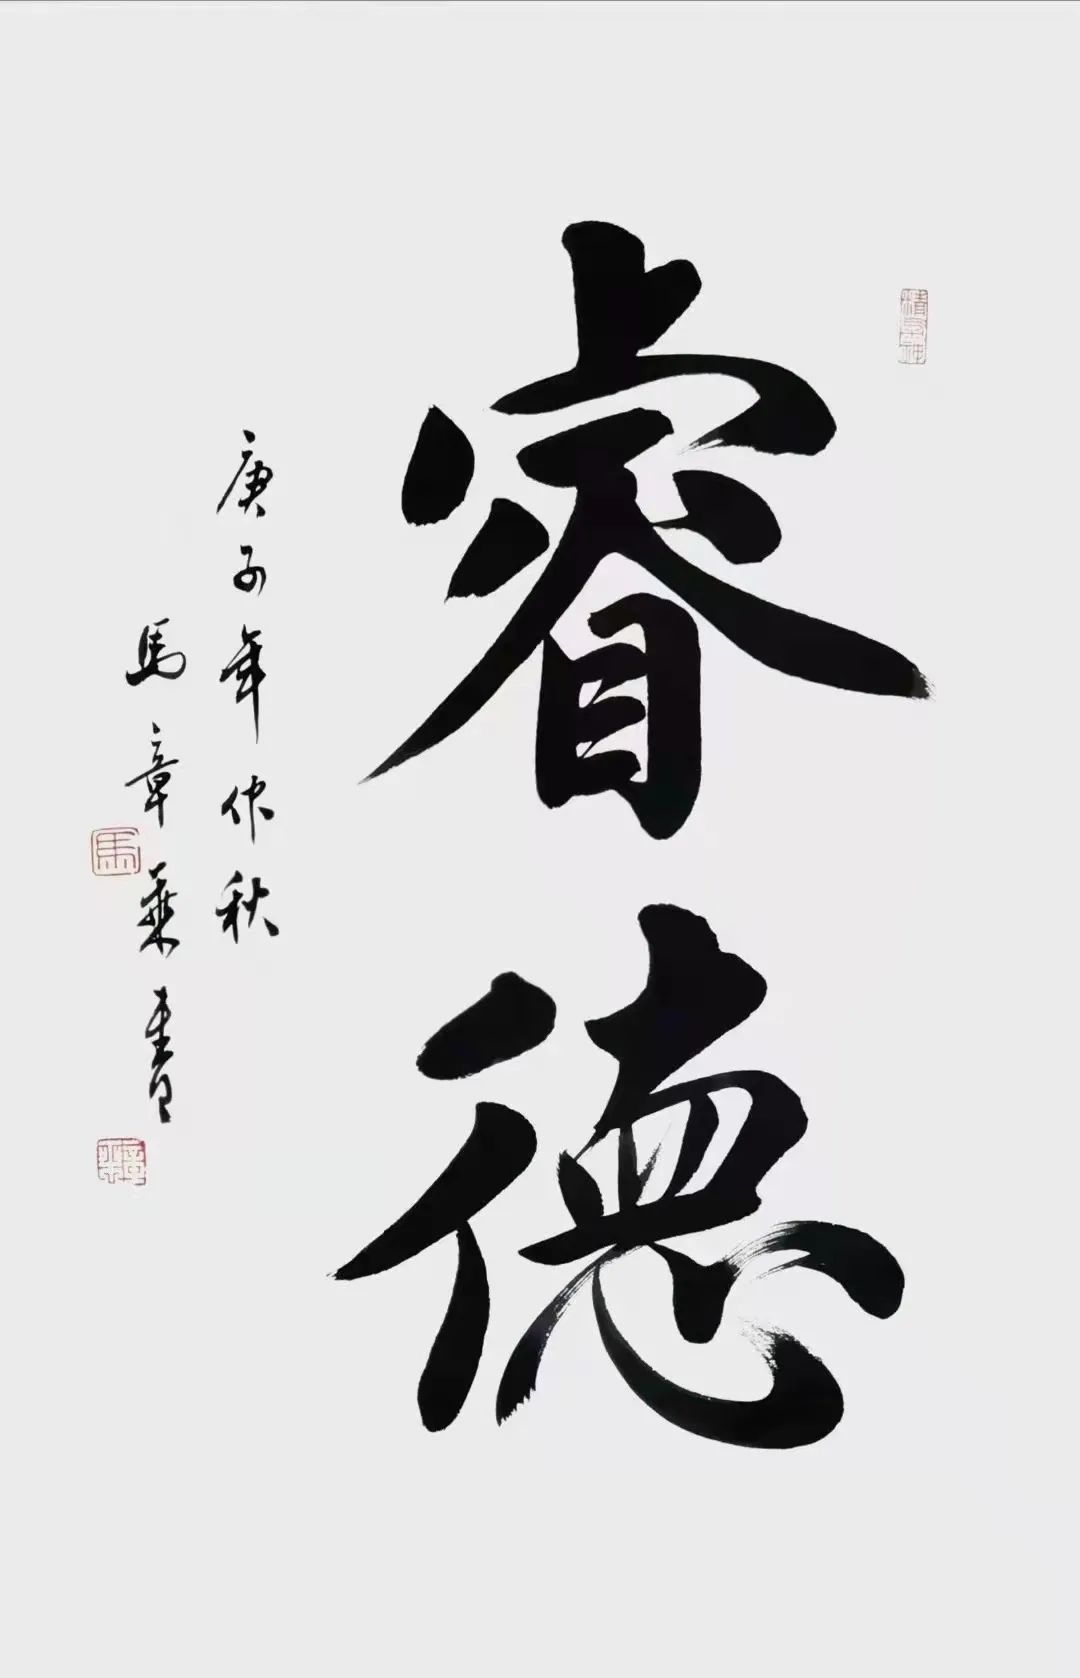 睿德
庚子年仲秋
馬章乘書
馬